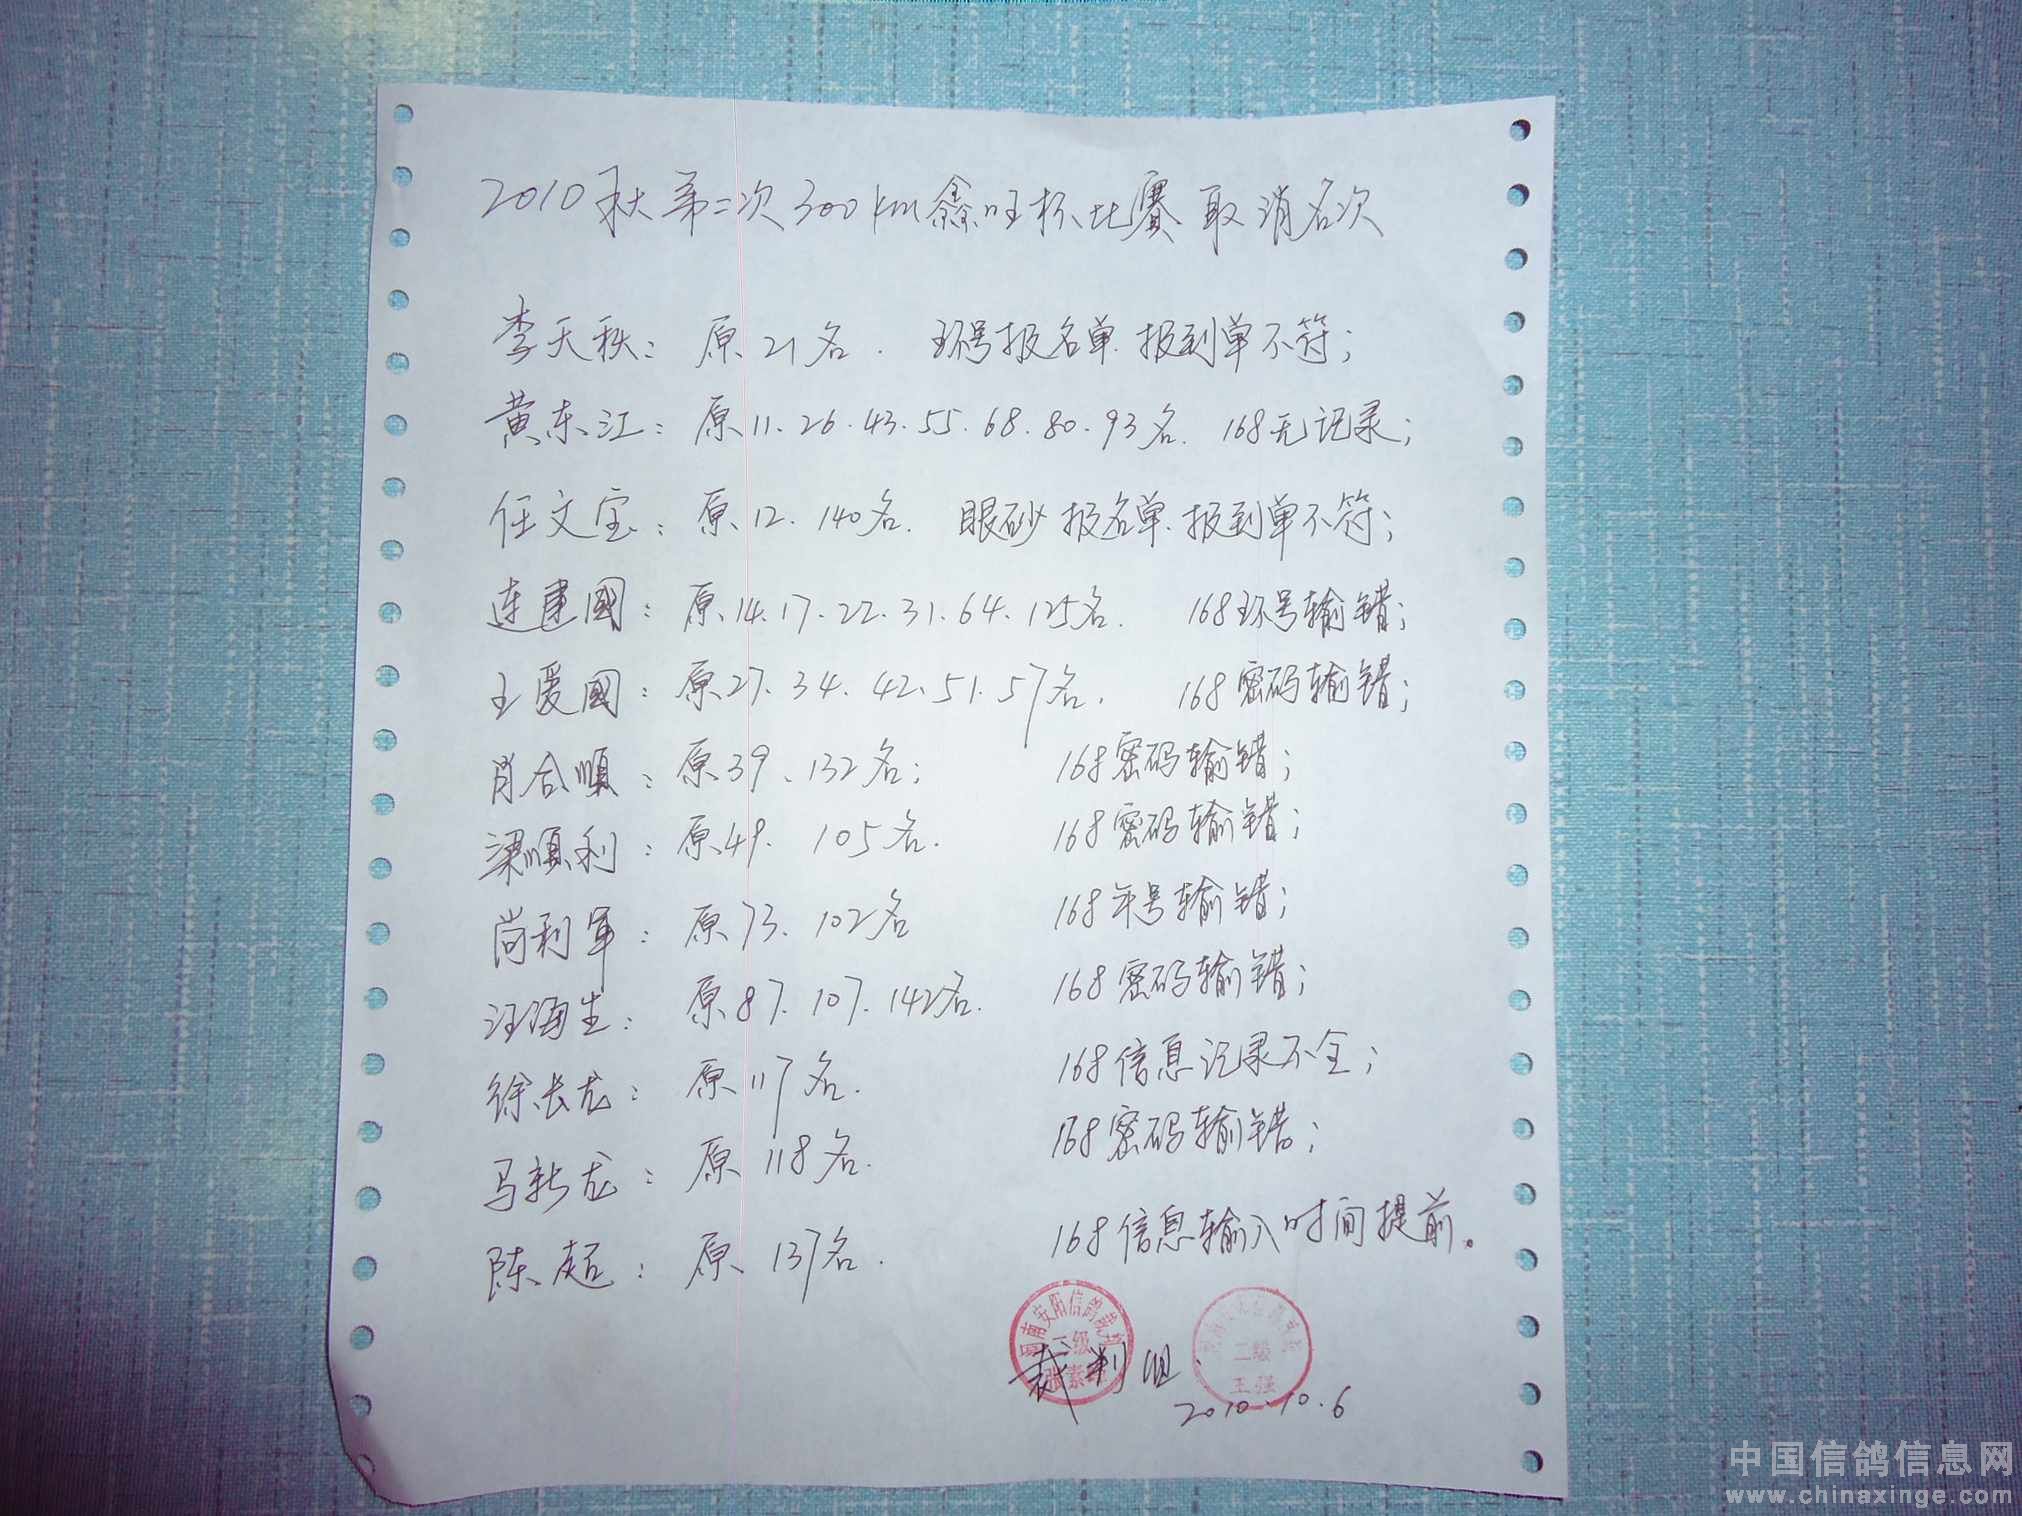 2010秋第二次300km鑫旺杯比赛取消名次
李天秩：原21名. 环号报名单.报到单不符；
黄东江：原11.26.43.55.68.80.93名. 168无记录；
任文宝：原12.140名. 眼砂报名单.报到单不符；
连建國：原14.17.22.31.64.125名. 168环号输错；
王爱國：原27.34.42.51.57名. 168密码输错；
肖合順：原39、132名； 168密码输错；
梁順利：原49. 105名. 168密码输错；
尚利軍：原73、102名 168年号输错；
汪海生：原87.107.142名. 168密码输错；
徐长龙：原117名. 168信息记录不全；
马新龙：原118名. 168密码输错；
陈超：原137名. 168信息输入时间提前。
河南安阳信鸽裁判
二级
二级
王强
裁判组.
2010.10.6
中国信鸽信息网
www.chinaxinge.com